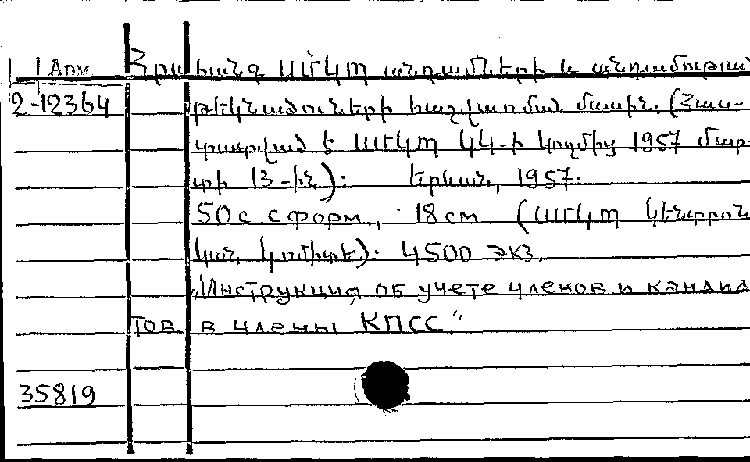 Арм Հրահանգ ՍՄԿՊ անդամների և անդամության
2-12364 թեկնածուների հաշվառման մասին. (Հաս-
տատված է ՍՄԿՊ ԿԿ-ի կողմից 1957 մար-
տի 13-ին): Երևան, 1957.
50 с с форм., 18 см (ՍՄԿՊ Կենտրոն
կան կոմիտե): 4500 экз.
„Инструкция об учете членов и кандида
тов в члены КПСС“
35819